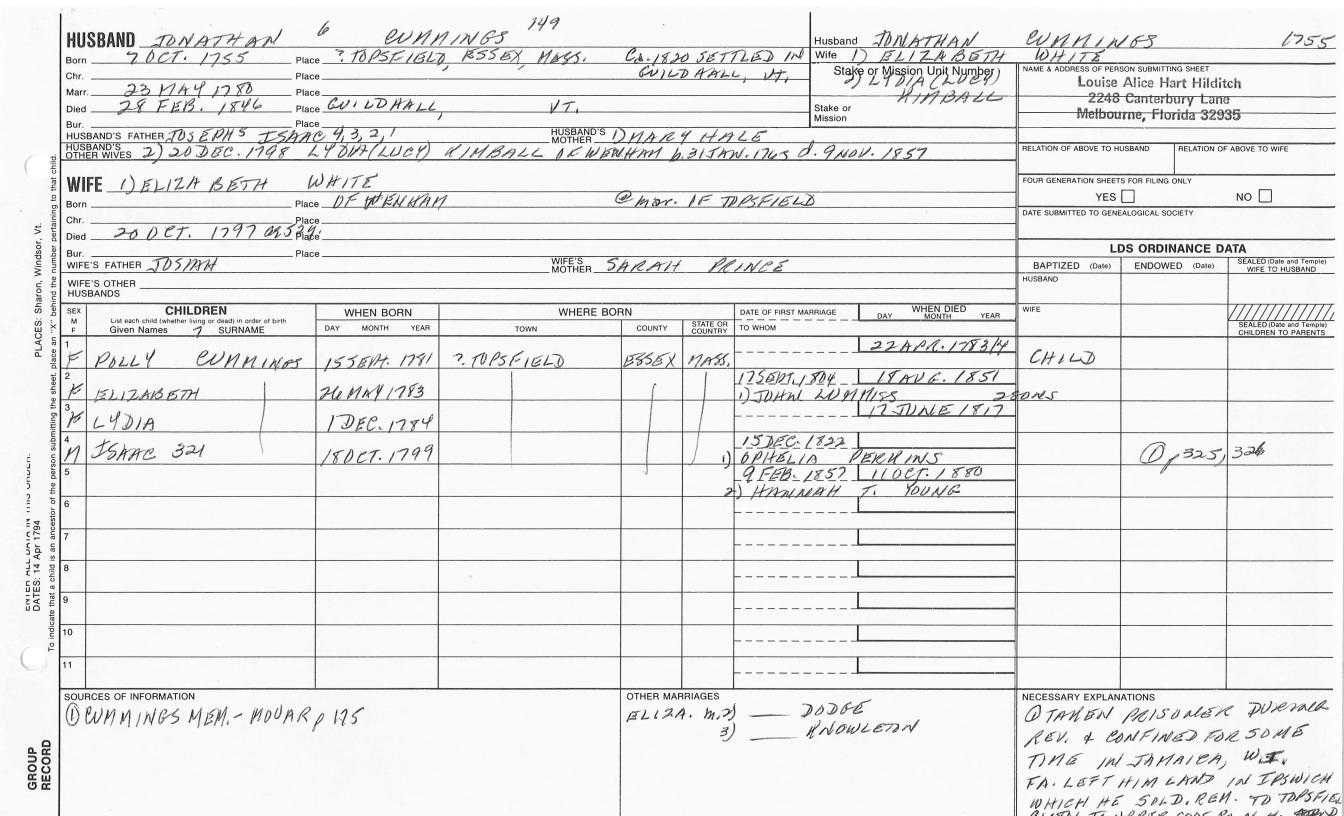 6 149
HUSBAND JONATHAN CUMMINGS
Born 7 OCT. 1755 Place ? TOPSFIELD, ESSEX, MASS. Ca. 1820 SETTLED IN
Chr. Place GUILDAALL, VT.
Marr. 23 MAY 1780 Place
Died 28 FEB. 1846 Place GUILDHALL, VT.
Bur. Place
HUSBAND'S FATHER JOSEPH5 ISAAC 4,3,2,1 HUSBAND'S MOTHER 1) MARY HALE
HUSBAND'S OTHER WIVES 2) 20 DEC. 1798 LYDIA (LUCY) KIMBALL OF WENHAM b. 31 JAN. 1763 d. 9 NOV. 1857
WIFE 1) ELIZABETH WHITE
Born Place OF WENHAM @ mar. OF TOPSFIELD
Chr. Place
Died 20 OCT. 1797 Place
Bur. Place
WIFE'S FATHER JOSIAH WIFE'S MOTHER SARAH PRINCE
WIFE'S OTHER HUSBANDS
Husband JONATHAN CUMMINGS 1755
Wife 1) ELIZABETH WHITE
Stake or Mission Unit Number
2) LYDIA (LUCY)
KIMBALL
Stake or Mission
NAME & ADDRESS OF PERSON SUBMITTING SHEET
Louise Alice Hart Hilditch
2248 Canterbury Lane
Melbourne, Florida 32935
RELATION OF ABOVE TO HUSBAND RELATION OF ABOVE TO WIFE
FOUR GENERATION SHEETS FOR FILING ONLY
YES NO
DATE SUBMITTED TO GENEALOGICAL SOCIETY
LDS ORDINANCE DATA
BAPTIZED (Date) ENDOWED (Date) SEALED (Date and Temple) WIFE TO HUSBAND
HUSBAND
WIFE
SEALED (Date and Temple) CHILDREN TO PARENTS
SEX M F
CHILDREN
List each child (whether living or dead) in order of birth
Given Names 7 SURNAME
WHEN BORN
DAY MONTH YEAR
WHERE BORN
TOWN COUNTY STATE OR COUNTRY
DATE OF FIRST MARRIAGE
TO WHOM
WHEN DIED
DAY MONTH YEAR
1 F POLLY CUMMINGS 15 SEPT. 1781 ? TOPSFIELD ESSEX MASS. 22 APR. 1783/4 CHILD
2 F ELIZABETH 26 MAY 1783 17 SEPT. 1804 18 AUG. 1851
1) JOHN LUMMISS 2 SONS
3 F LYDIA 1 DEC. 1784 17 JUNE 1817
4 M ISAAC 321 18 OCT. 1799 15 DEC. 1822 ① p 325, 326
1) OPHELIA PERKINS
5 9 FEB. 1857 11 OCT. 1880
2) HANNAH T. YOUNG
6
7
8
9
10
11
SOURCES OF INFORMATION
① CUMMINGS MEM. - MOUAR p 175
OTHER MARRIAGES
ELIZA. m. 2) ___ DODGE
3) ___ KNOWLETON
NECESSARY EXPLANATIONS
① TAKEN PRISONER DURING
REV. & CONFINED FOR SOME
TIME IN JAMAICA, W.I.
FA. LEFT HIM LAND IN IPSWICH
WHICH HE SOLD. REM. TO TOPSFIE
PLACES: Sharon, Windsor, Vt.
DATES: 14 Apr 1794
To indicate that a child is an ancestor of the person submitting the sheet, place an "X" behind the number pertaining to that child.
GROUP RECORD